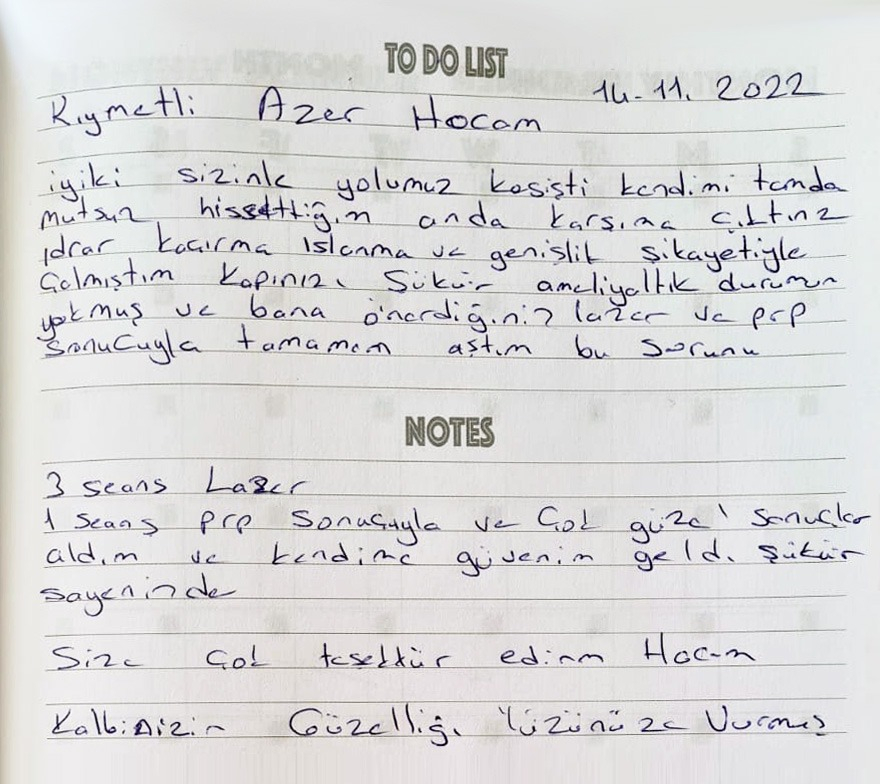 TO DO LIST
14.11.2022
Kıymetli Azer Hocam
iyiki sizinle yolumuz kesişti kendimi tamda
mutsuz hissettiğim anda karşıma çıktınız
ıdrar kaçırma ıslanma ve genişlik şikayetiyle
Gelmiştim kapınıza Şükür ameliyatlık durumum
yokmuş ve bana önerdiğiniz lazer ve prp
sonucuyla tamamen aştım bu sorunu
NOTES
3 seans Lazer
1 seans prp sonucuyla ve Çok güzel sonuçlar
aldım ve kendime güvenim geldi şükür
sayenizde
Size Çok teşekkür ederim Hocam
Kalbinizin Güzelliği Yüzünüze Vurmuş